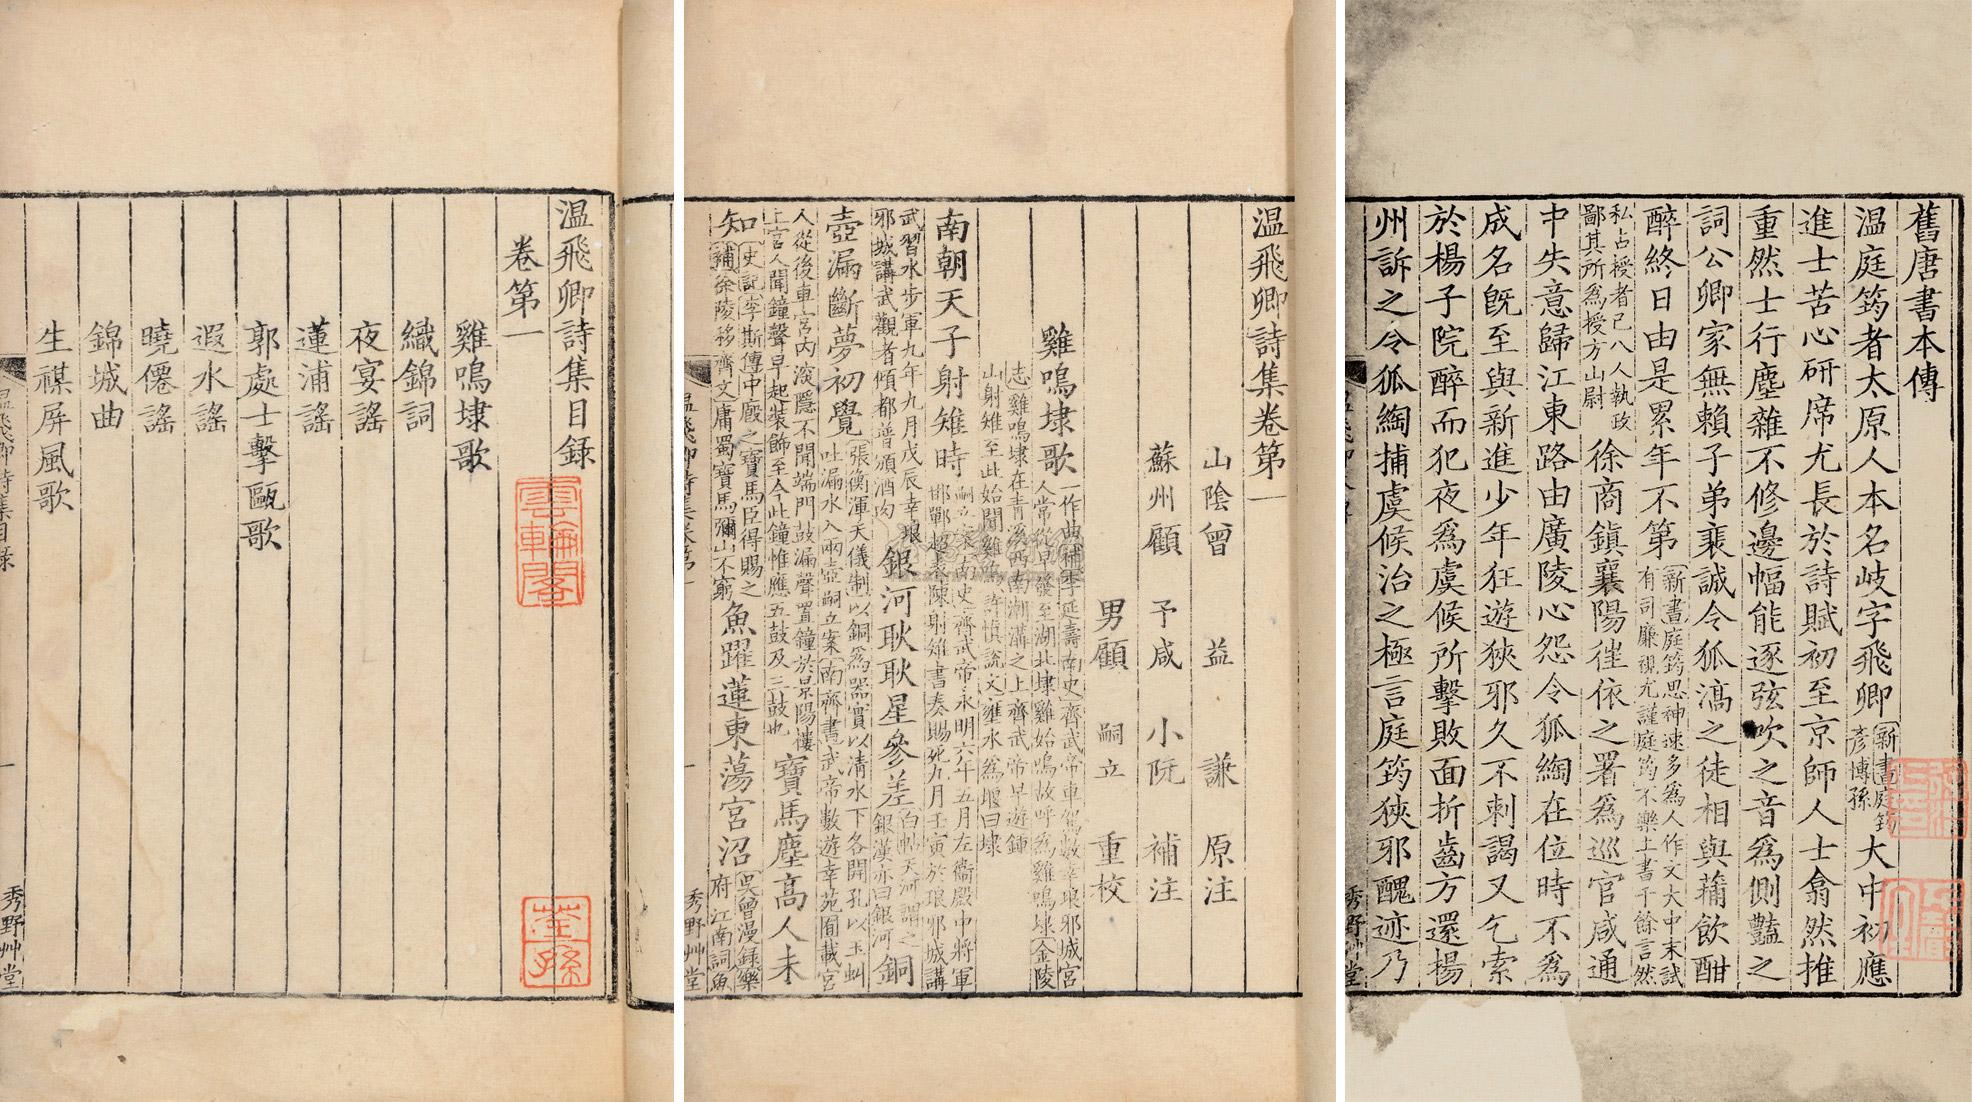 温飛卿詩集目録
卷第一
雞鳴埭歌
織錦詞
夜宴謠
蓮浦謠
郭處士擊甌歌
遐水謠
曉僊謠
錦城曲
生禖屏風歌
温飛卿詩集目録
一
秀野艸堂
雲輪閣
荃孫
温飛卿詩集卷第一
山陰曾　益　謙　原注
蘇州顧　予咸　小阮　補注
男顧　嗣立　重校
雞鳴埭歌一作曲補李延壽南史齊武帝車駕數幸琅邪城宮人常從早發至湖北埭雞始鳴故呼爲雞鳴埭金陵
志雞鳴埭在青溪西南潮溝之上齊武帝早遊鍾山射雉至此始聞雞鳴許慎說文壅水爲堰曰埭
南朝天子射雉時嗣立案南史齊武帝永明六年五月左衞殿中將軍邯鄲超表陳射雉書奏賜死九月壬寅於琅邪城講
武習水步軍九年九月戊辰幸琅邪城講武觀者傾都普頒酒肉銀河耿耿星參差白帖天河謂之銀漢亦曰銀河銅
壺漏斷夢初覺張衡渾天儀制以銅爲器實以清水下各開孔以玉虯吐漏水入兩壺嗣立案南齊書武帝數遊幸苑囿載宮
人從後車宮內深隱不聞端門鼓漏聲置鐘於景陽樓上宮人聞鐘聲早起裝飾至今此鐘惟應五鼓及三鼓也寶馬塵高人未
知史記李斯傳中廄之寶馬臣得賜之補徐陵移齊文庸蜀寶馬彌山不窮魚躍蓮東蕩宮沼吳曾漫録樂府江南詞魚
温飛卿詩集卷第一
一
秀野艸堂
舊唐書本傳
温庭筠者太原人本名岐字飛卿新書庭筠彥博孫大中初應
進士苦心研席尤長於詩賦初至京師人士翕然推
重然士行塵雜不修邊幅能逐弦吹之音爲側豔之
詞公卿家無賴子弟裴誠令狐滈之徒相與蒱飲酣
醉終日由是累年不第新書庭筠思神速多爲人作文大中末試有司廉視尤謹庭筠不樂上書千餘言然
私占授者已八人執政鄙其所爲授方山尉徐商鎭襄陽徃依之署爲巡官咸通
中失意歸江東路由廣陵心怨令狐綯在位時不爲
成名旣至與新進少年狂遊狹邪久不刺謁又乞索
於楊子院醉而犯夜爲虞候所擊敗面折齒方還楊
州訴之令狐綯捕虞候治之極言庭筠狹邪醜迹乃
秀野艸堂